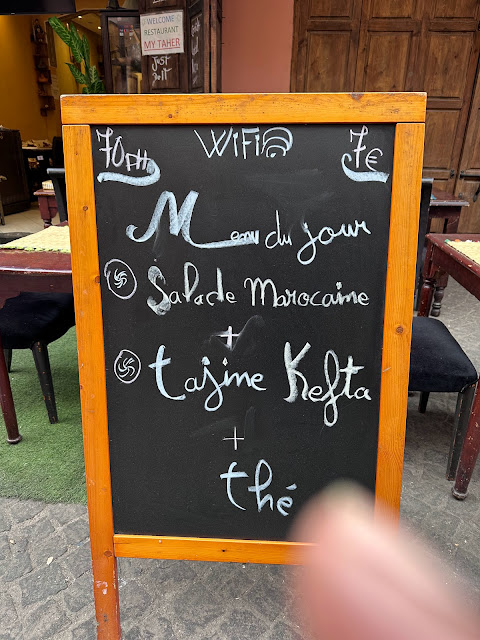 WELCOME
RESTAURANT
MY TAHER
70DH WiFi 7€
Menu du jour
Salade Marocaine
+
tajine Kefta
+
thé